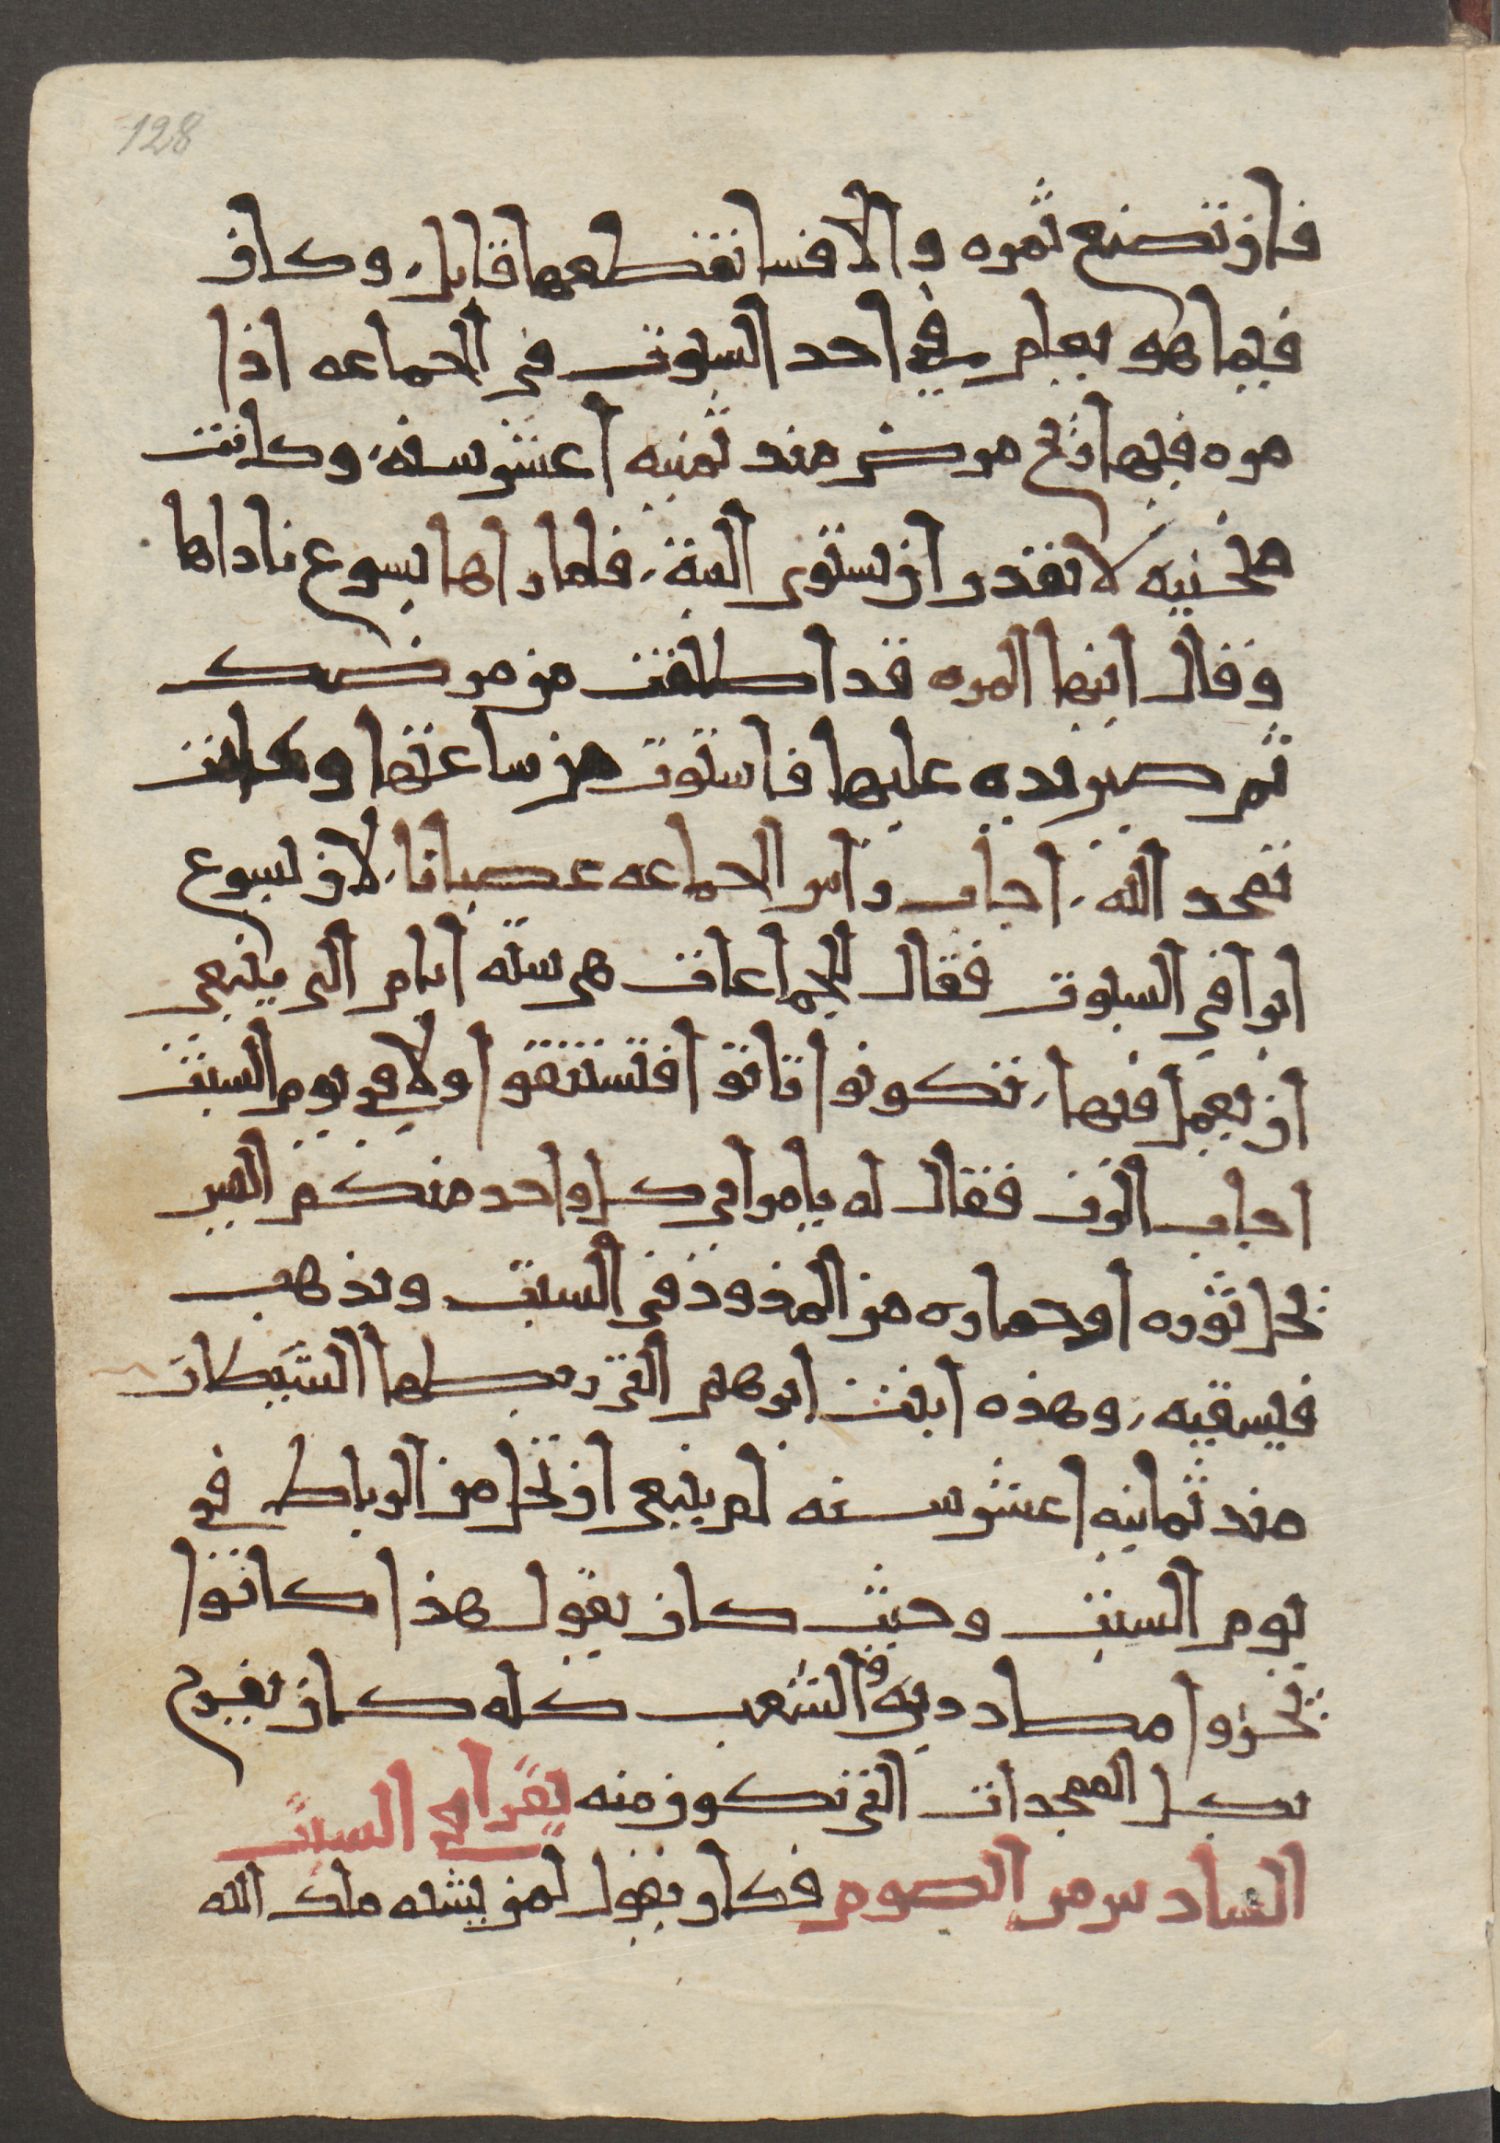 128
فان تصنع ثمره والا فستقطعها قابل، وكان
فيما هو يعلم في احد السبوت في الجماعه اذا
مره فيها ارنح مرض منذ ثمنيه اعشر سنه، وكانت
منحنيه لا تقدر ان تستوي البتة، فلما راها يسوع ناداها
وقال ايتها المره قد اطلقت من مرضك
ثم صير يده عليها فاستوت من ساعتها وكانت
تمجد الله، اجاب راس الجماعه عصبانا، لان يسوع
ابرا في السبوت فقال للجماعات هي ستة ايام التي ينبغي
ان يعمل فيها، تكونوا تاتوا فتستشفوا ولا في يوم السبت
اجاب الرب فقال له يا مرائي كل واحد منكم اليس
يحل ثوره او حماره من المذوذ في السبت ويذهب
فيسقيه، وهذه ابنت ابرهيم التي ربطها الشيطان
منذ ثمانيه اعشر سنه لم ينبغي ان تحل من الرباط في
يوم السبت وحيث كان يقول هذا كانوا
يخزوا مضادديه والشعب كله كان يفرح
بكل المجدات التي تكون منه يقرا في السبت
السادس من الصوم فكان يقول لمن يشبه ملك الله